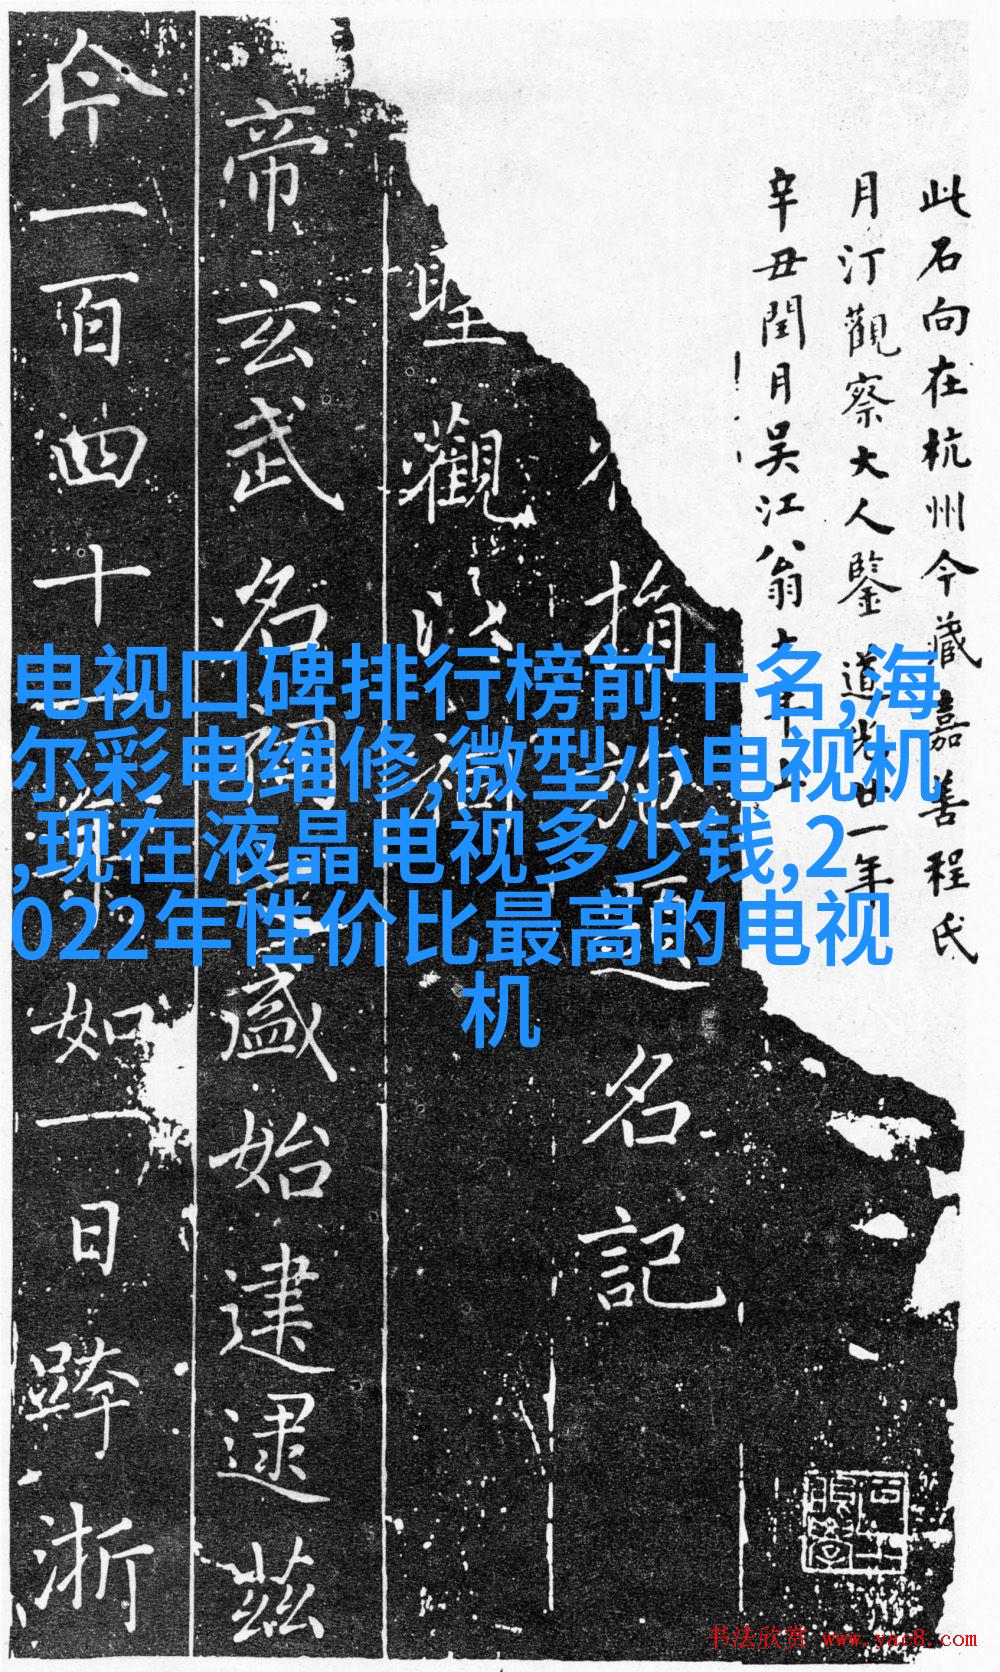 此石向在杭州今藏嘉善程氏
月汀觀察大人鑒 道光廿一年
辛丑閏月吳江翁大年
指
名記
聖觀
帝玄武名
盛始建逮茲
今一百四十二年如一日
浙
电视口碑排行榜前十名,海
尔彩电维修,微型小电视机
,现在液晶电视多少钱,2
022年性价比最高的电视
机
书法欣赏 www.yac8.com